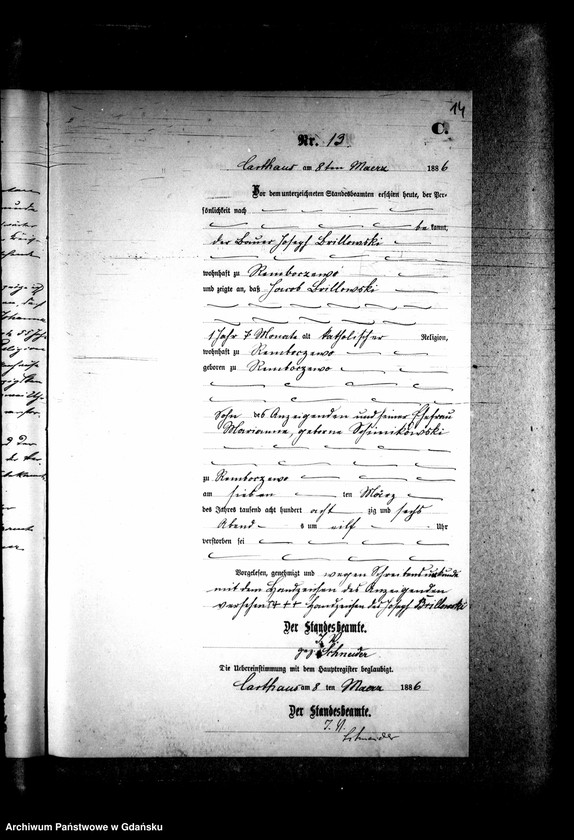 14
C.
Nr. 13
Carthaus am 8 ten Maerz 1886
Vor dem unterzeichneten Standesbeamten erschien heute, der Per-
sönlichkeit nach
bekannt,
der Bauer Joseph Brillowski
wohnhaft zu Remboczewo
und zeigte an, daß Jacob Brillowski
1 Jahr 7 Monate alt katholischer Religion,
wohnhaft zu Remboczewo
geboren zu Remboczewo
Sohn des Anzeigenden und seiner Ehefrau
Marianna, geborne
zu Remboczewo
am sieben ten März
des Jahres tausend acht hundert acht zig und sechs
Abends um eilf Uhr
verstorben sei
Vorgelesen, genehmigt und wegen Schreibensunkunde
mit dem Handzeichen des Anzeigenden
versehen +++ Handzeichen des Joseph Brillowski
Der Standesbeamte.
I. V.
gez. Schneider
Die Uebereinstimmung mit dem Hauptregister beglaubigt.
Carthaus am 8 ten Maerz 1886
Der Standesbeamte.
I. V.
Schneider
Archiwum Państwowe w Gdańsku